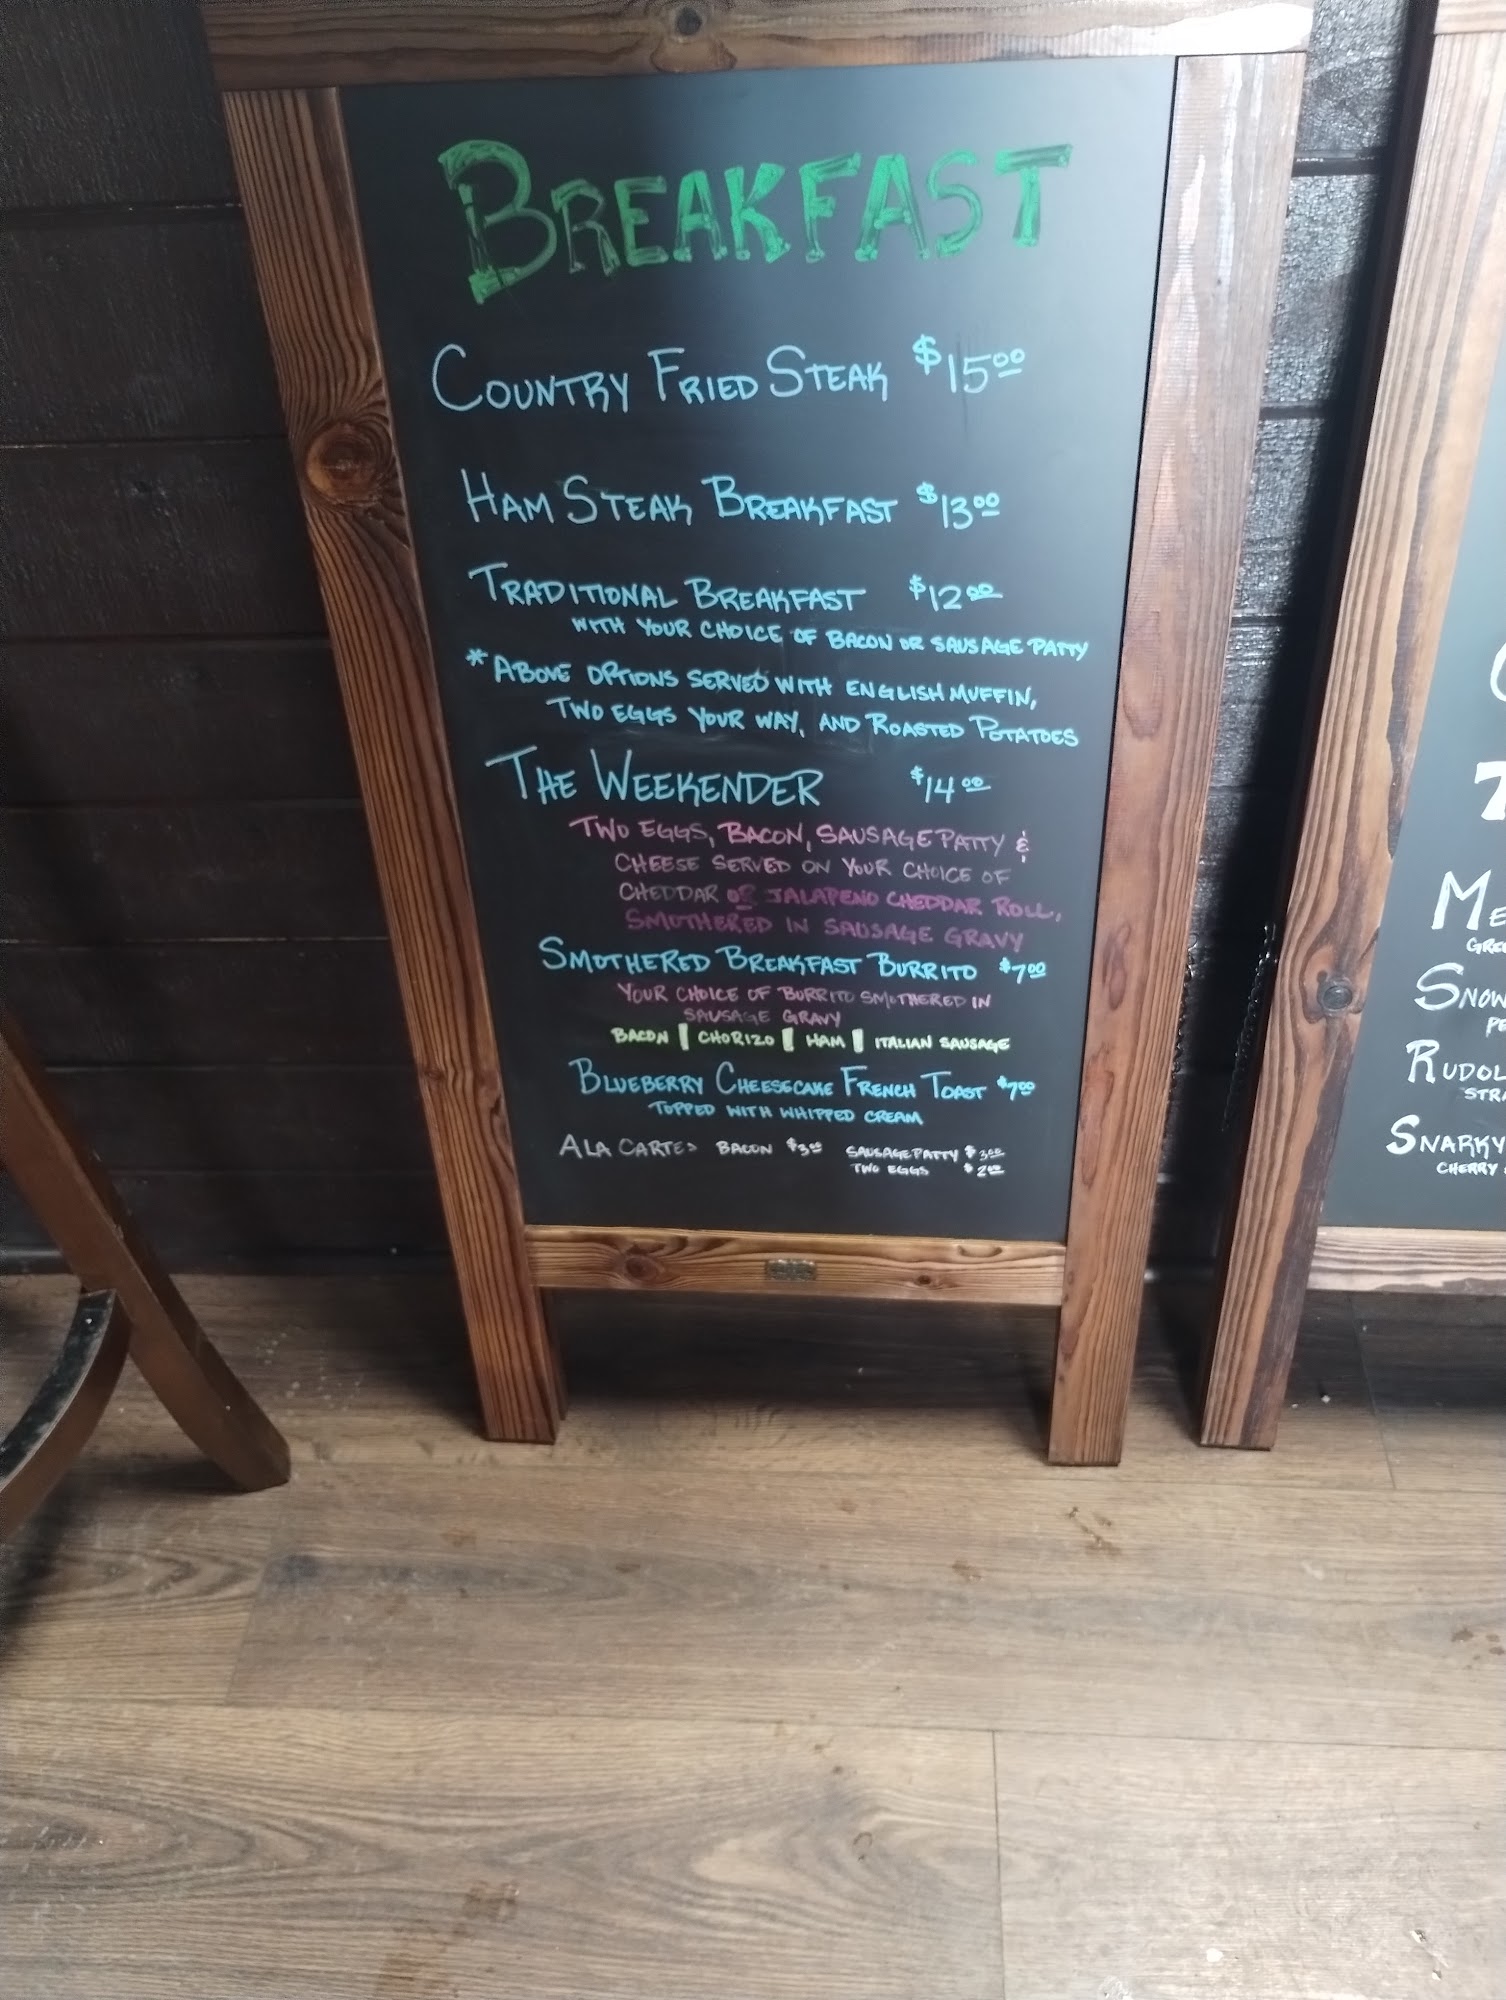 BREAKFAST
COUNTRY FRIED STEAK $15.00
HAM STEAK BREAKFAST $13.00
TRADITIONAL BREAKFAST $12.00
WITH YOUR CHOICE OF BACON OR SAUSAGE PATTY
* ABOVE OPTIONS SERVED WITH ENGLISH MUFFIN,
TWO EGGS YOUR WAY, AND ROASTED POTATOES
THE WEEKENDER $14.00
TWO EGGS, BACON, SAUSAGE PATTY &
CHEESE SERVED ON YOUR CHOICE OF
CHEDDAR OR JALAPENO CHEDDAR ROLL,
SMOTHERED IN SAUSAGE GRAVY
SMOTHERED BREAKFAST BURRITO $7.00
YOUR CHOICE OF BURRITO SMOTHERED IN
SAUSAGE GRAVY
BACON | CHORIZO | HAM | ITALIAN SAUSAGE
BLUEBERRY CHEESECAKE FRENCH TOAST $7.00
TOPPED WITH WHIPPED CREAM
ALA CARTE> BACON $3.00 SAUSAGE PATTY $3.00
TWO EGGS $2.00
ME
GRE
SNOW
PE
RUDOL
STRA
SNARKY
CHERRY